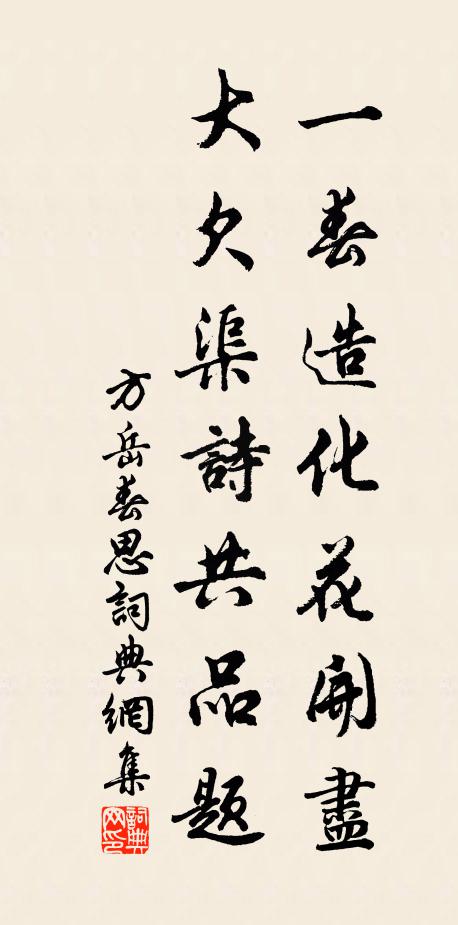 一春造化花開盡
大欠渠詩共品題
方岳春思詞典網集
詞典網印